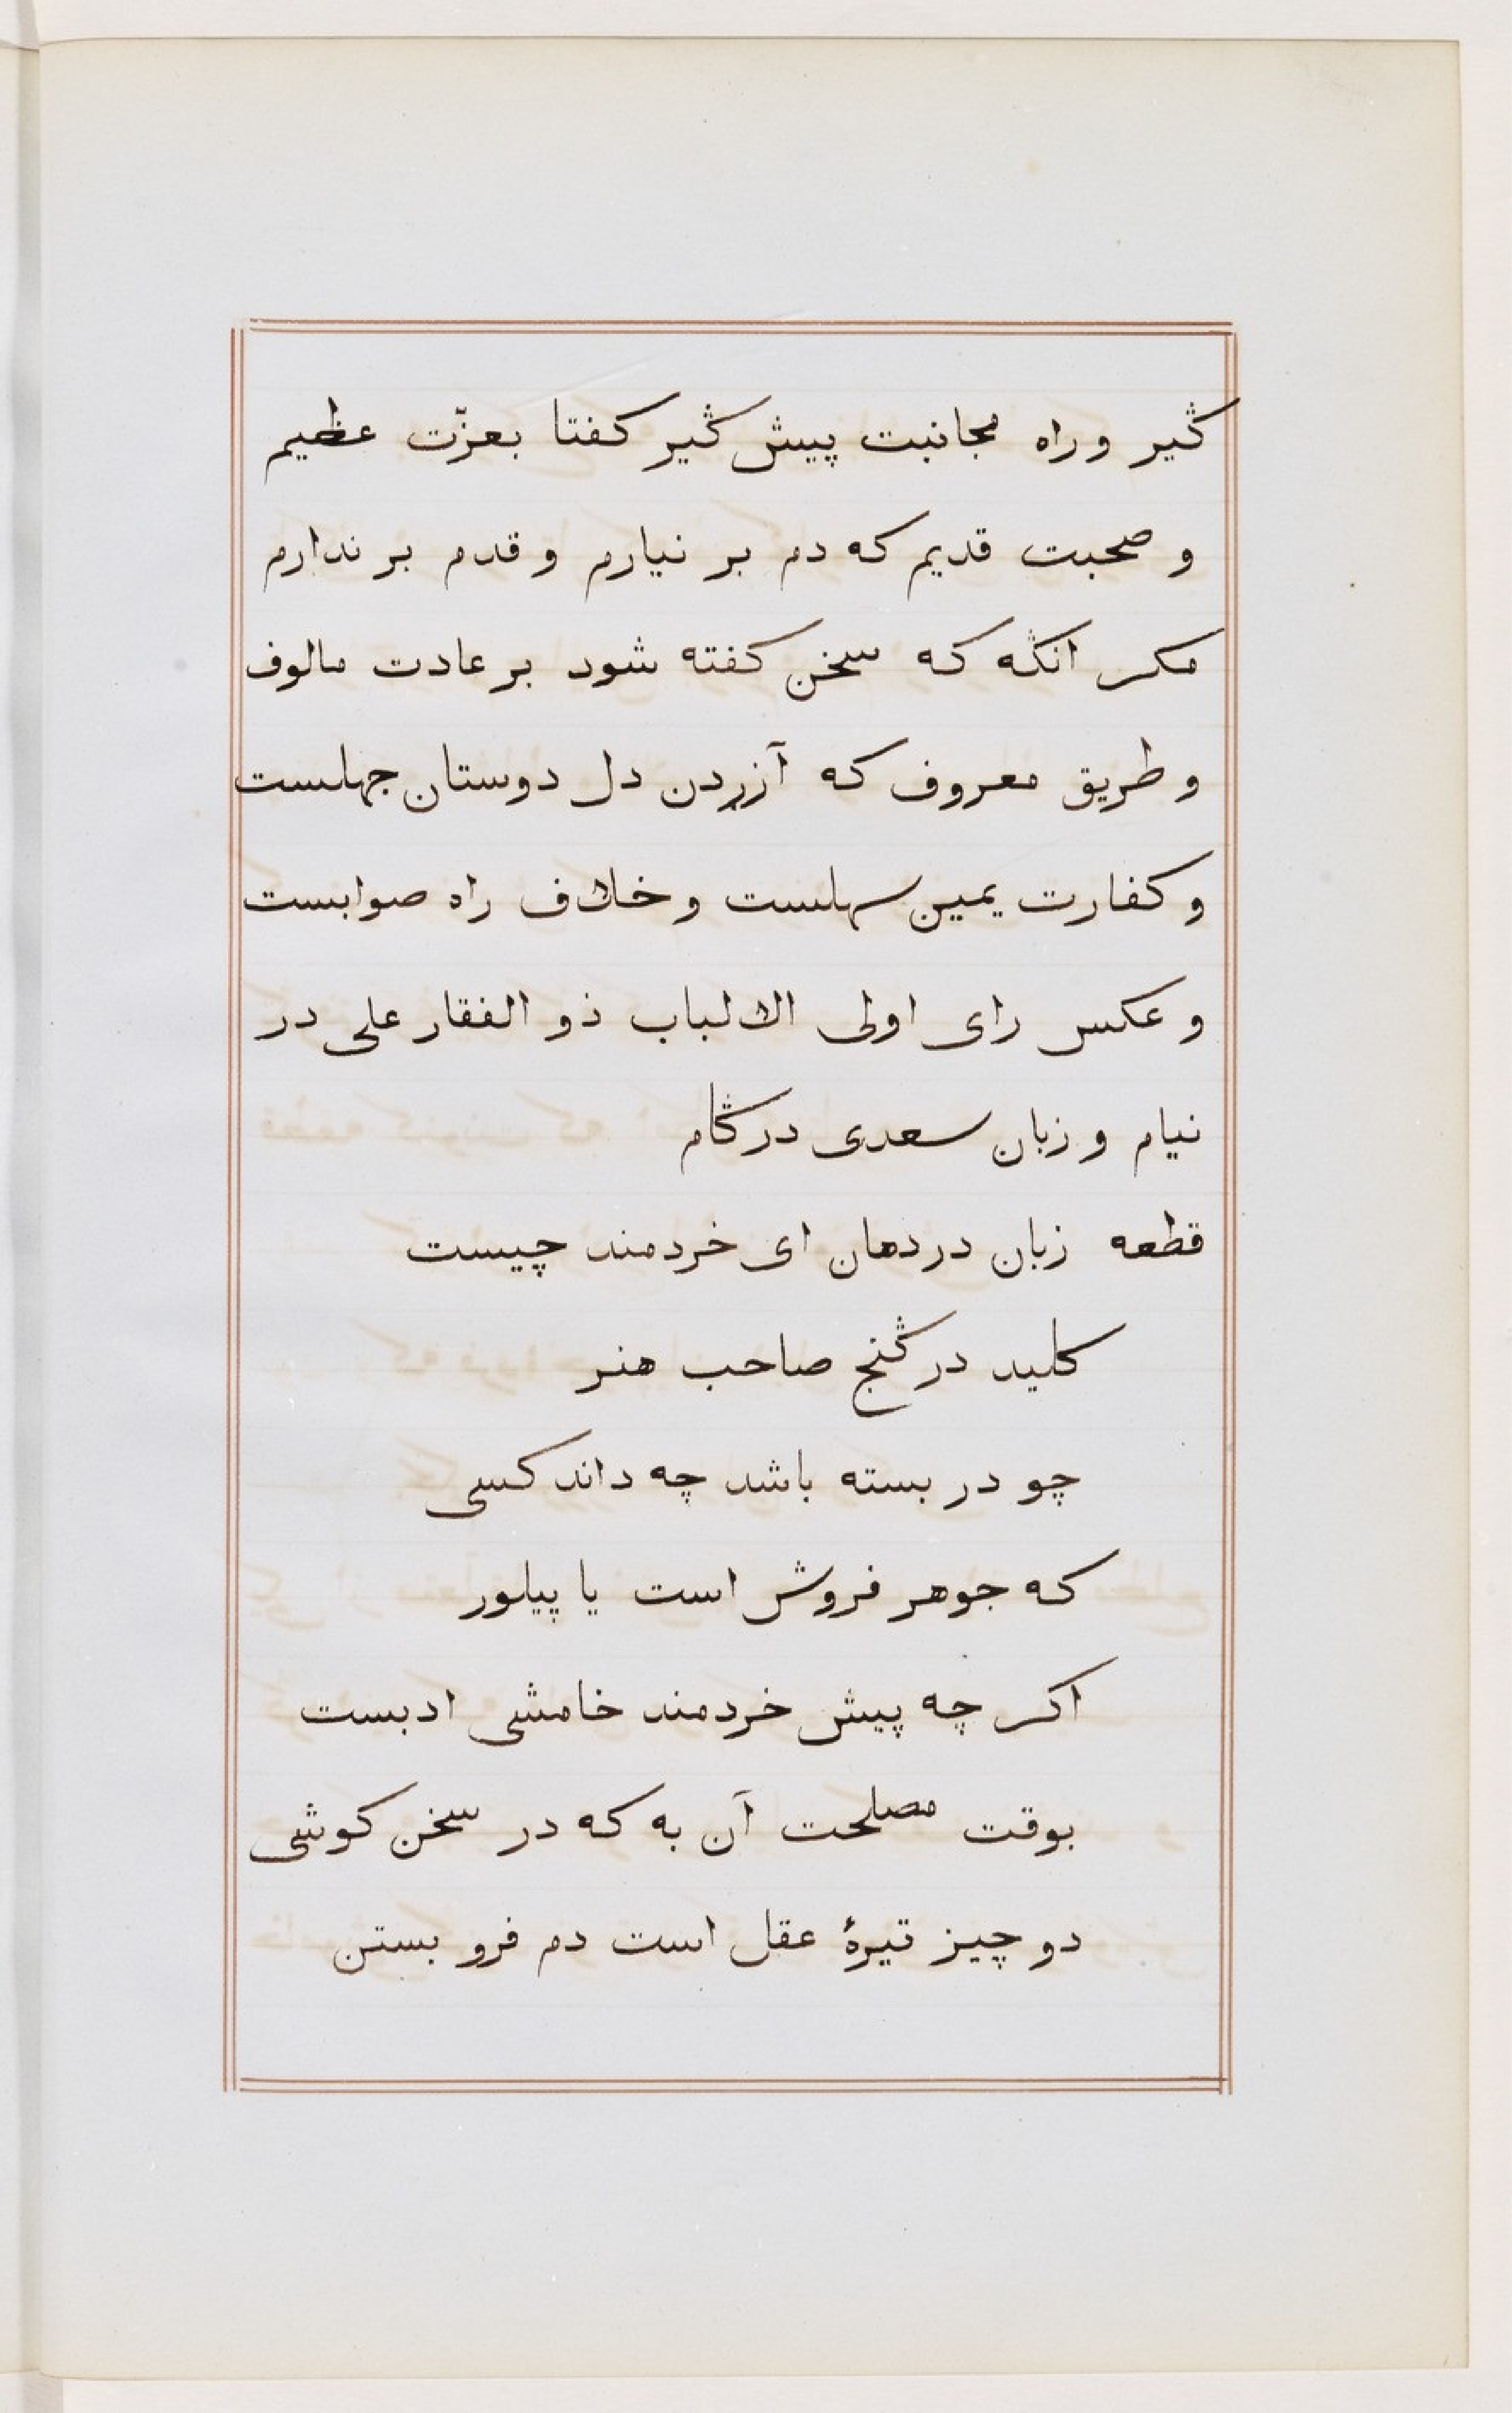 ڭیر و راه مجانبت پیش ڭیر کفتا بعزّت عظیم
و صحبت قدیم که دم بر نیارم و قدم بر ندارم
مکر انڭه که سخن کفته شود بر عادت مالوف
و طریق معروف که آزردن دل دوستان جهلست
و کفارت یمین سهلست و خلاف راه صوابست
و عکس رای اولی الالباب ذو الفقار علی در
نیام و زبان سعدی در ڭام
قطعه زبان در دهان ای خردمند چیست
کلید در ڭنج صاحب هنر
چو در بسته باشد چه داند کسی
که جوهر فروش است یا پیلور
اکر چه پیش خردمند خامشی ادبست
بوقت مصلحت آن به که در سخن کوشی
دو چیز تیرهٔ عقل است دم فرو بستن